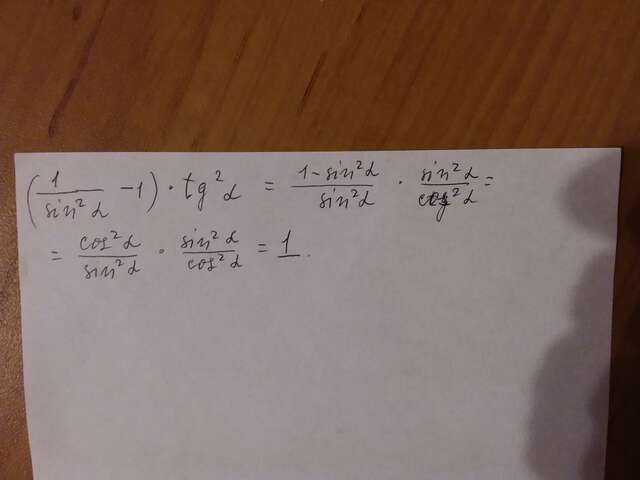 (1/sin²α - 1) · tg²α = (1-sin²α)/sin²α · sin²α/cos²α =
= cos²α/sin²α · sin²α/cos²α = 1.